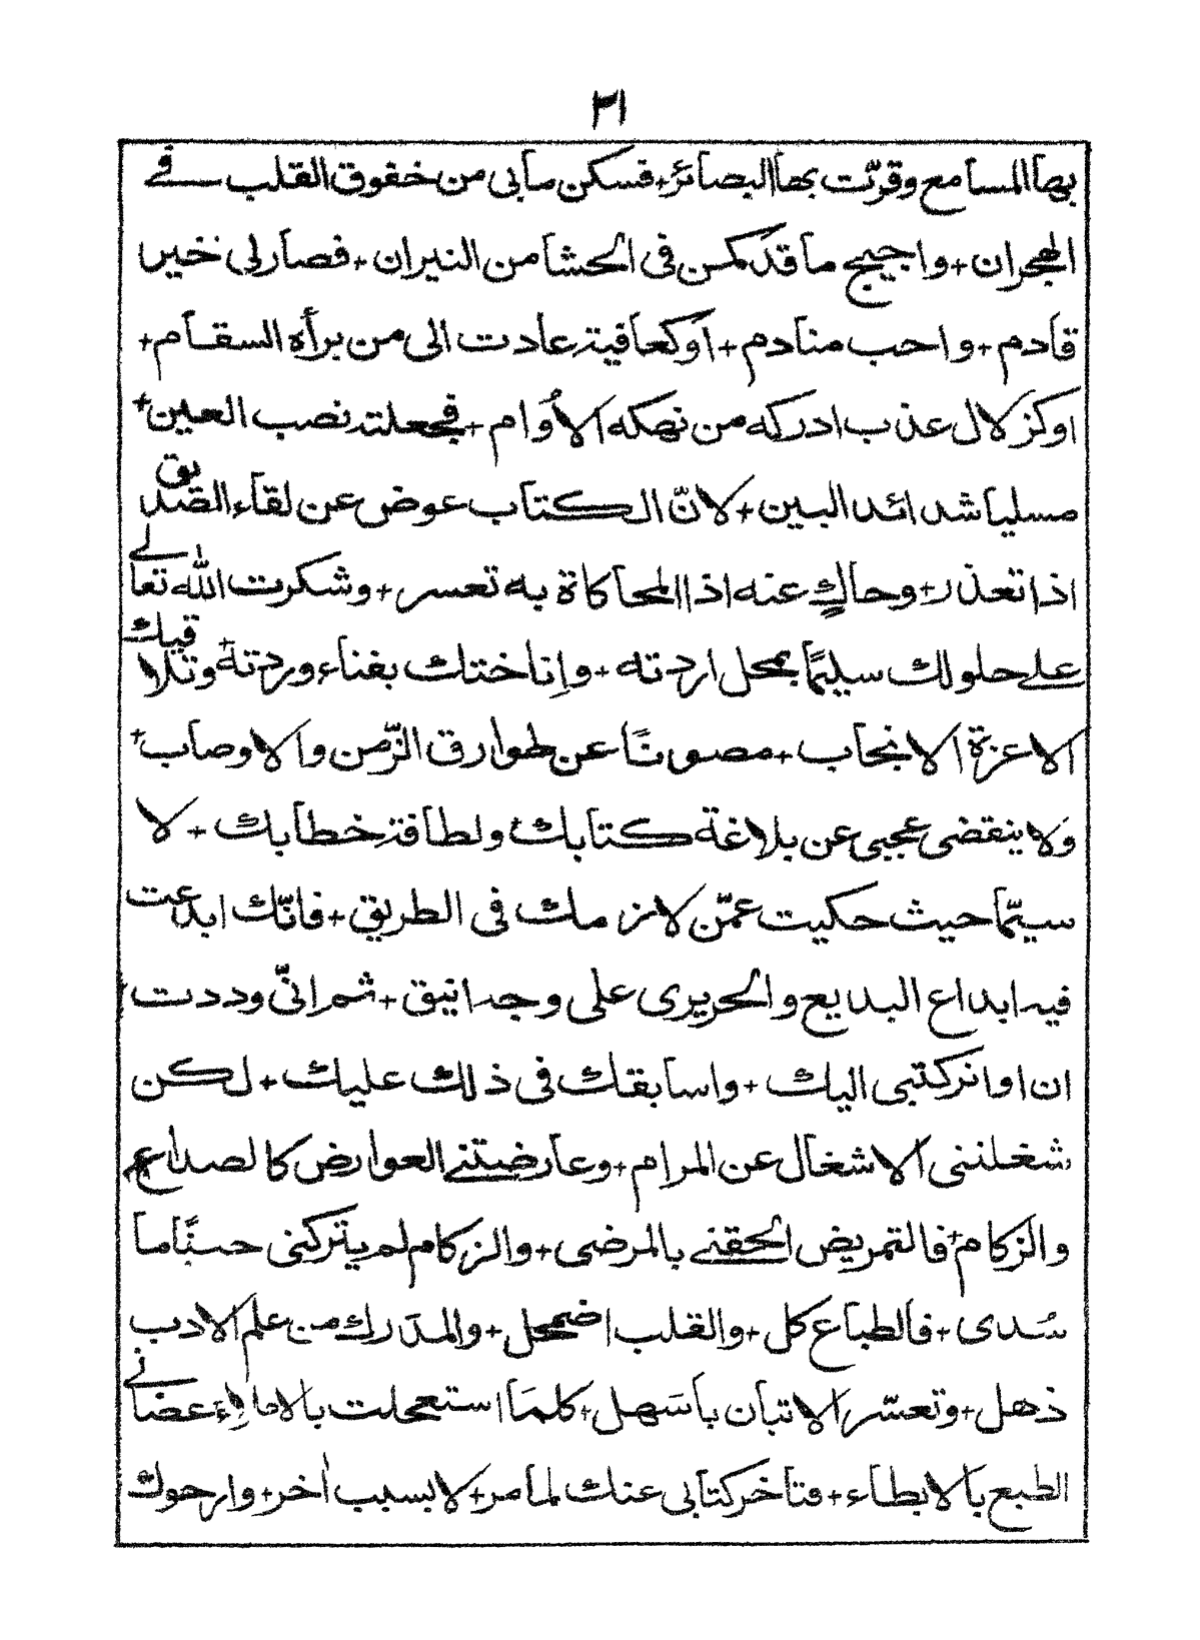 ٣١
بها المسامع وقرّت بها البصائر + فسكن ما بى من خفوق القلب فے
الهجران + واجيج ما قد كمن فى الحشا من النيران + فصار لى خير
قادم + واحب منادم + او كعافية عادت الى من براه السقام +
او كزلال عذب ادركه من نهكه الاُوام + فجعلته نصب العين +
مسليا شدائد البين + لانّ الكتاب عوض عن لقاء الصديق
اذا تعذر + وحاكٍ عنه اذا المحاكاة به تعسر + وشكرت الله تعالے
علے حلولك سليمًا بمحل اردته + واناختك بفناء وردته + وتلاقيك
الاعزة الانجاب + مصونًا عن طوارق الزّمن والاوصاب +
ولا ينقضى عجبى عن بلاغة كتابك ولطافة خطابك + لا
سيّما حيث حكيت عمّن لازمك فى الطريق + فانّك ابدعت
فيه ابداع البديع والحريرى على وجه انيق + ثم انىّ وددت
ان اواتر كتبى اليك + واسابقك فى ذلك عليك + لكن
شغلتنى الاشغال عن المرام + وعارضتنے العوارض كالصداع
والزكام + فالتمريض الحقنے بالمرضى + والزكام لم يتركنى حسًّا ما
سُدى + فالطباع كل + والقلب اضمحل + والمدرك من علم الادب
ذهل + وتعسّر الاتيان باسهل + كلما استعجلت بالاملاء عضانے
الطبع بالابطاء + فتأخر كتابى عنك لما مر + لا بسبب اٰخر + وارجوك